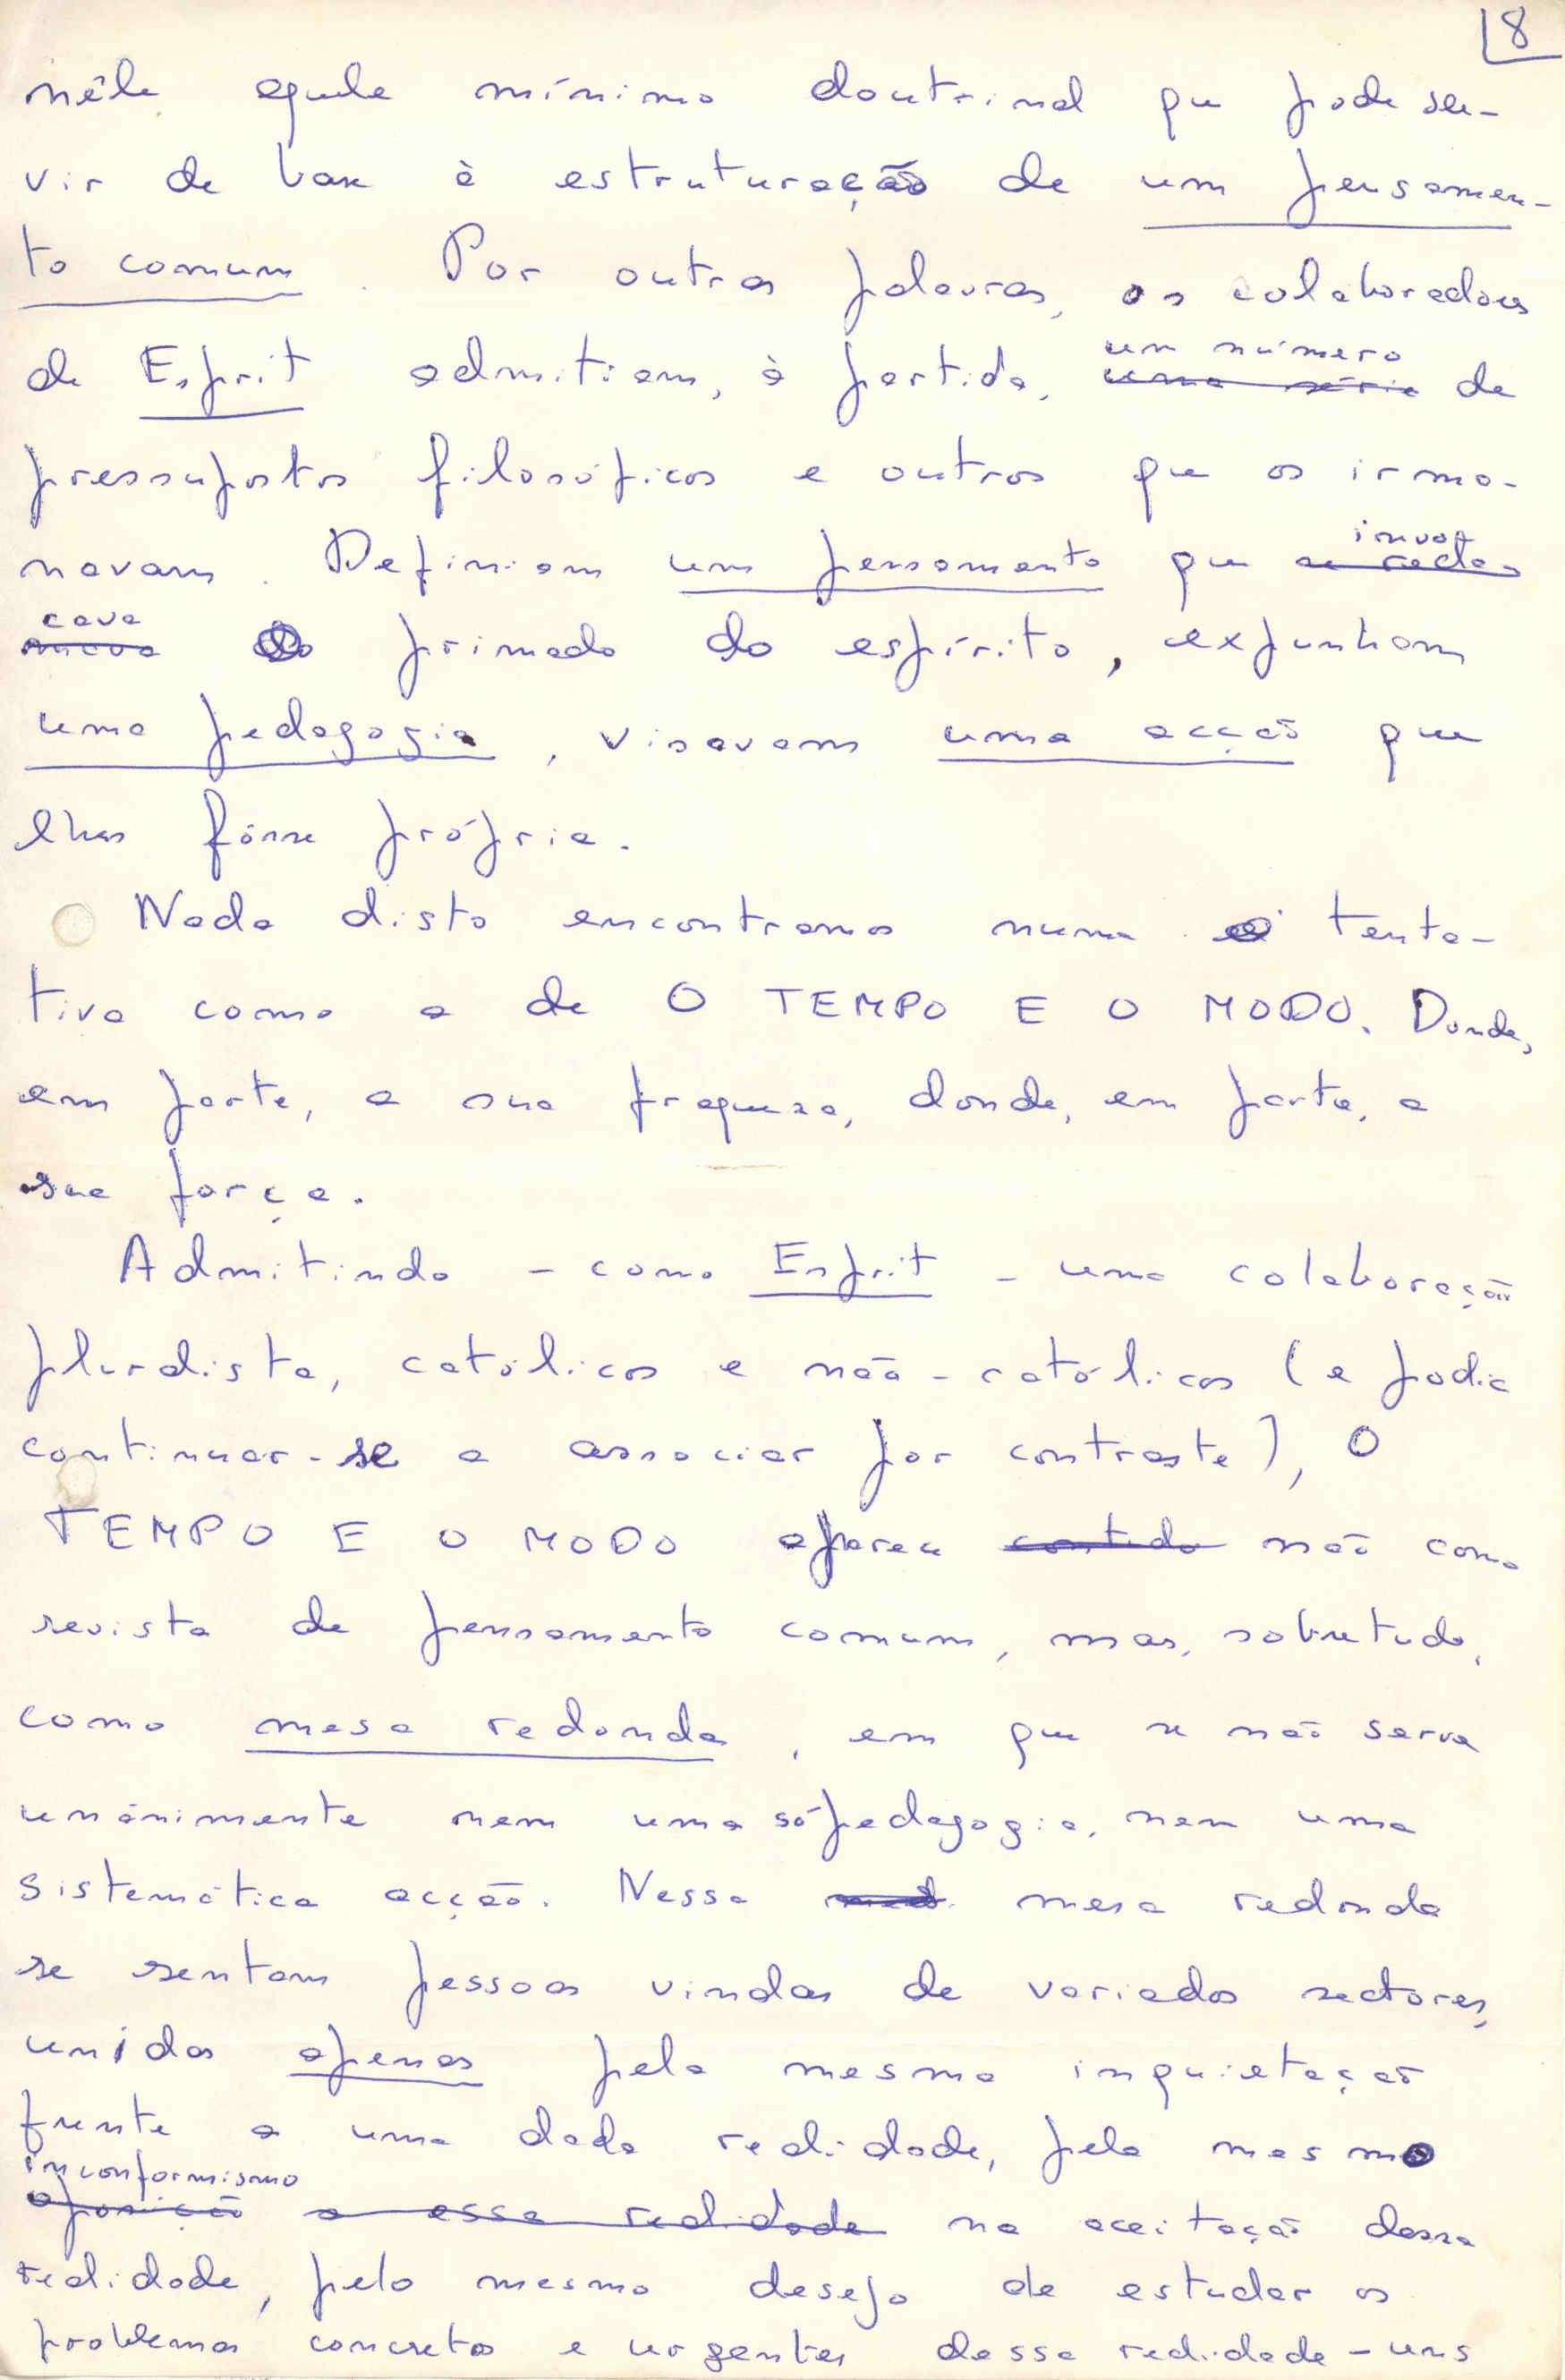 8
nêle aquele mínimo doutrinal que pode ser-
vir de base à estruturação de um pensamen-
to comum. Por outras palavras, os colaboradores
de Esprit admitiam, à partida, um número
uma série de
pressupostos filosóficos e outros que os irma-
navam. Definiam um pensamento que invo-
cava
o primado do espírito, expunham
uma pedagogia, visavam uma acção que
lhes fôsse própria.
Nada disto encontramos numa tenta-
tiva como a de O TEMPO E O MODO. Donde,
em parte, a sua fraqueza, donde, em parte, a
sua força.
Admitindo - como Esprit - uma colaboração
pluralista, católicos e não-católicos (e podia
continuar-se a associar por contraste), O
TEMPO E O MODO aparece contido não como
revista de pensamento comum, mas, sobretudo,
como mesa redonda, em que se não serve
unânimente nem uma só pedagogia, nem uma
sistemática acção. Nessa mesa redonda
se sentam pessoas vindas de variados sectores,
unidas apenas pela mesma inquietação
frente a uma dada realidade, pelo mesmo
inconformismo
oposição a essa realidade na aceitação dessa
realidade, pelo mesmo desejo de estudar os
problemas concretos e urgentes dessa realidade - uns